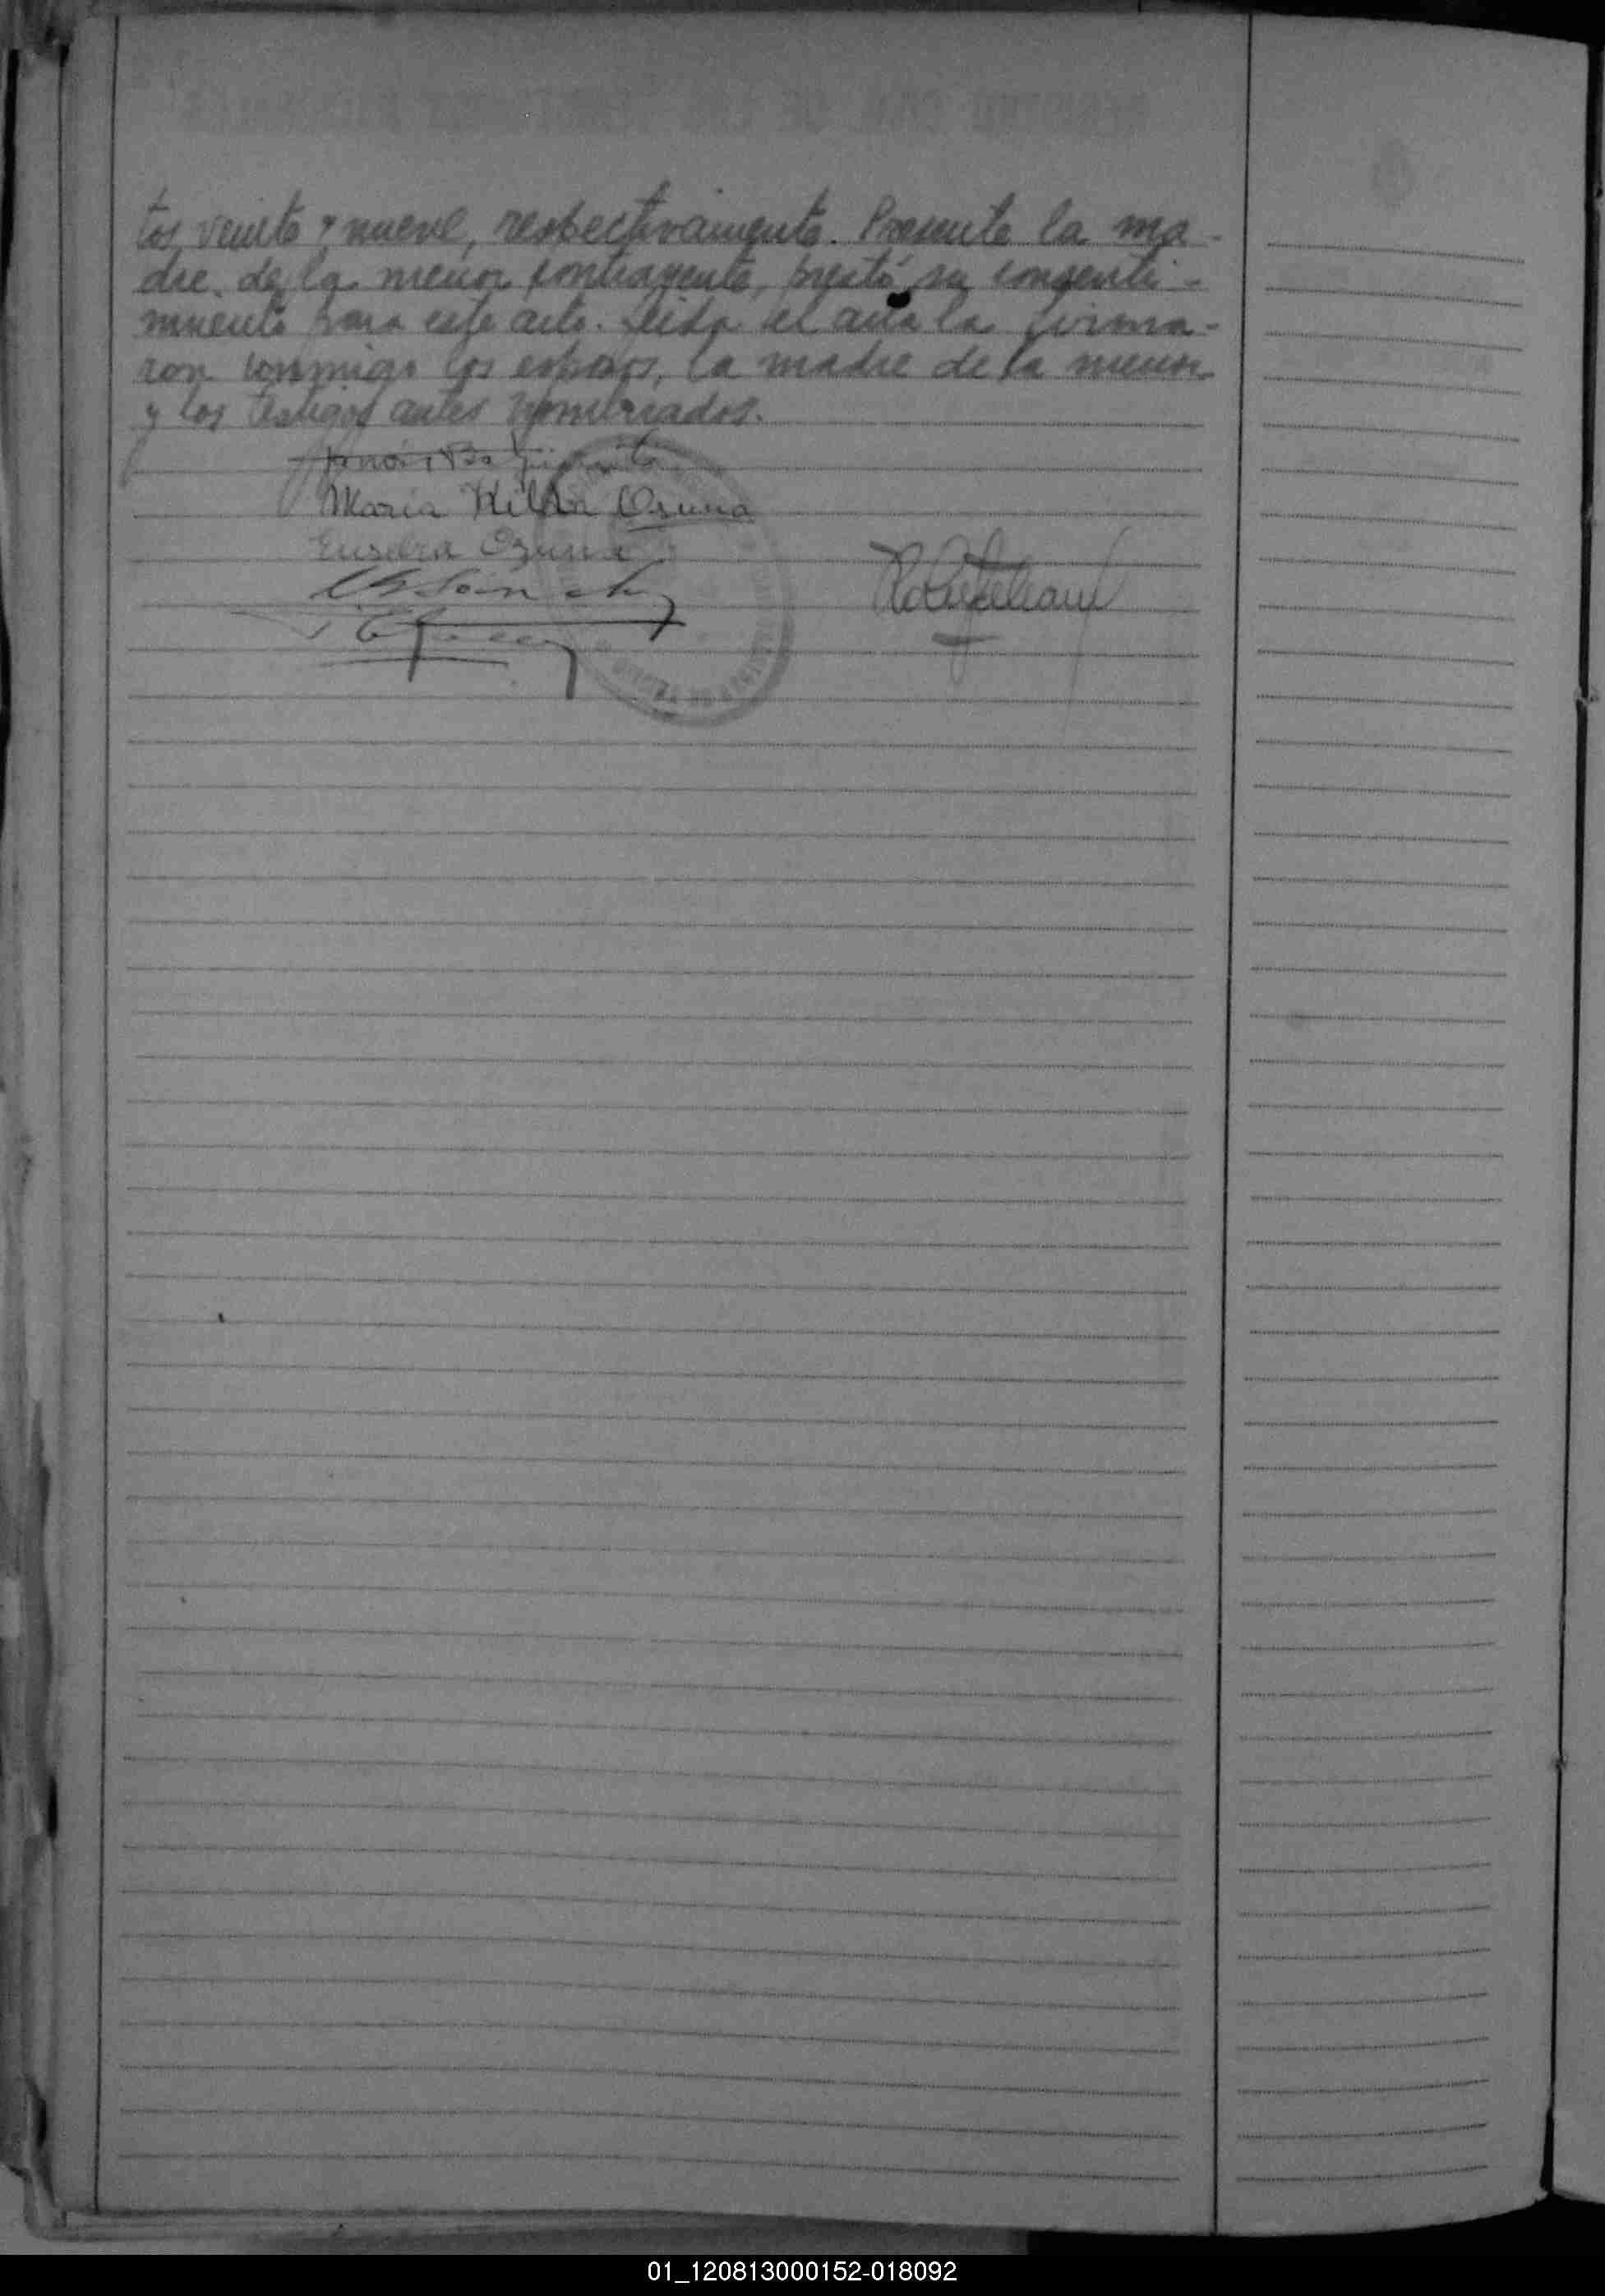 tos veinte y nueve, respectivamente. Presente la ma-
dre de la menor contrayente, prestó su consenti-
miento para este acto. Leida el acta la firma-
ron conmigo los esposos, la madre de la menor
y los testigos antes nombrados.
Maria Hilda Osuna
Eusebia Ozuna
01_120813000152-018092